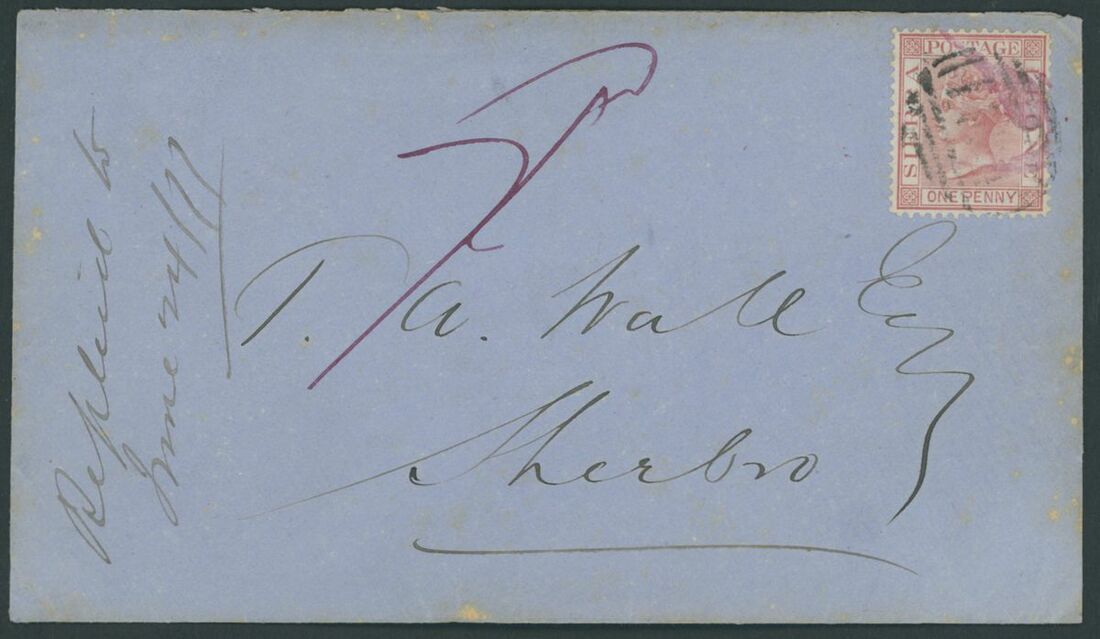 Replied to
June 24/77
POSTAGE
SIERRA
LEONE
ONE PENNY
T. A. Wall Esq
Sherbro